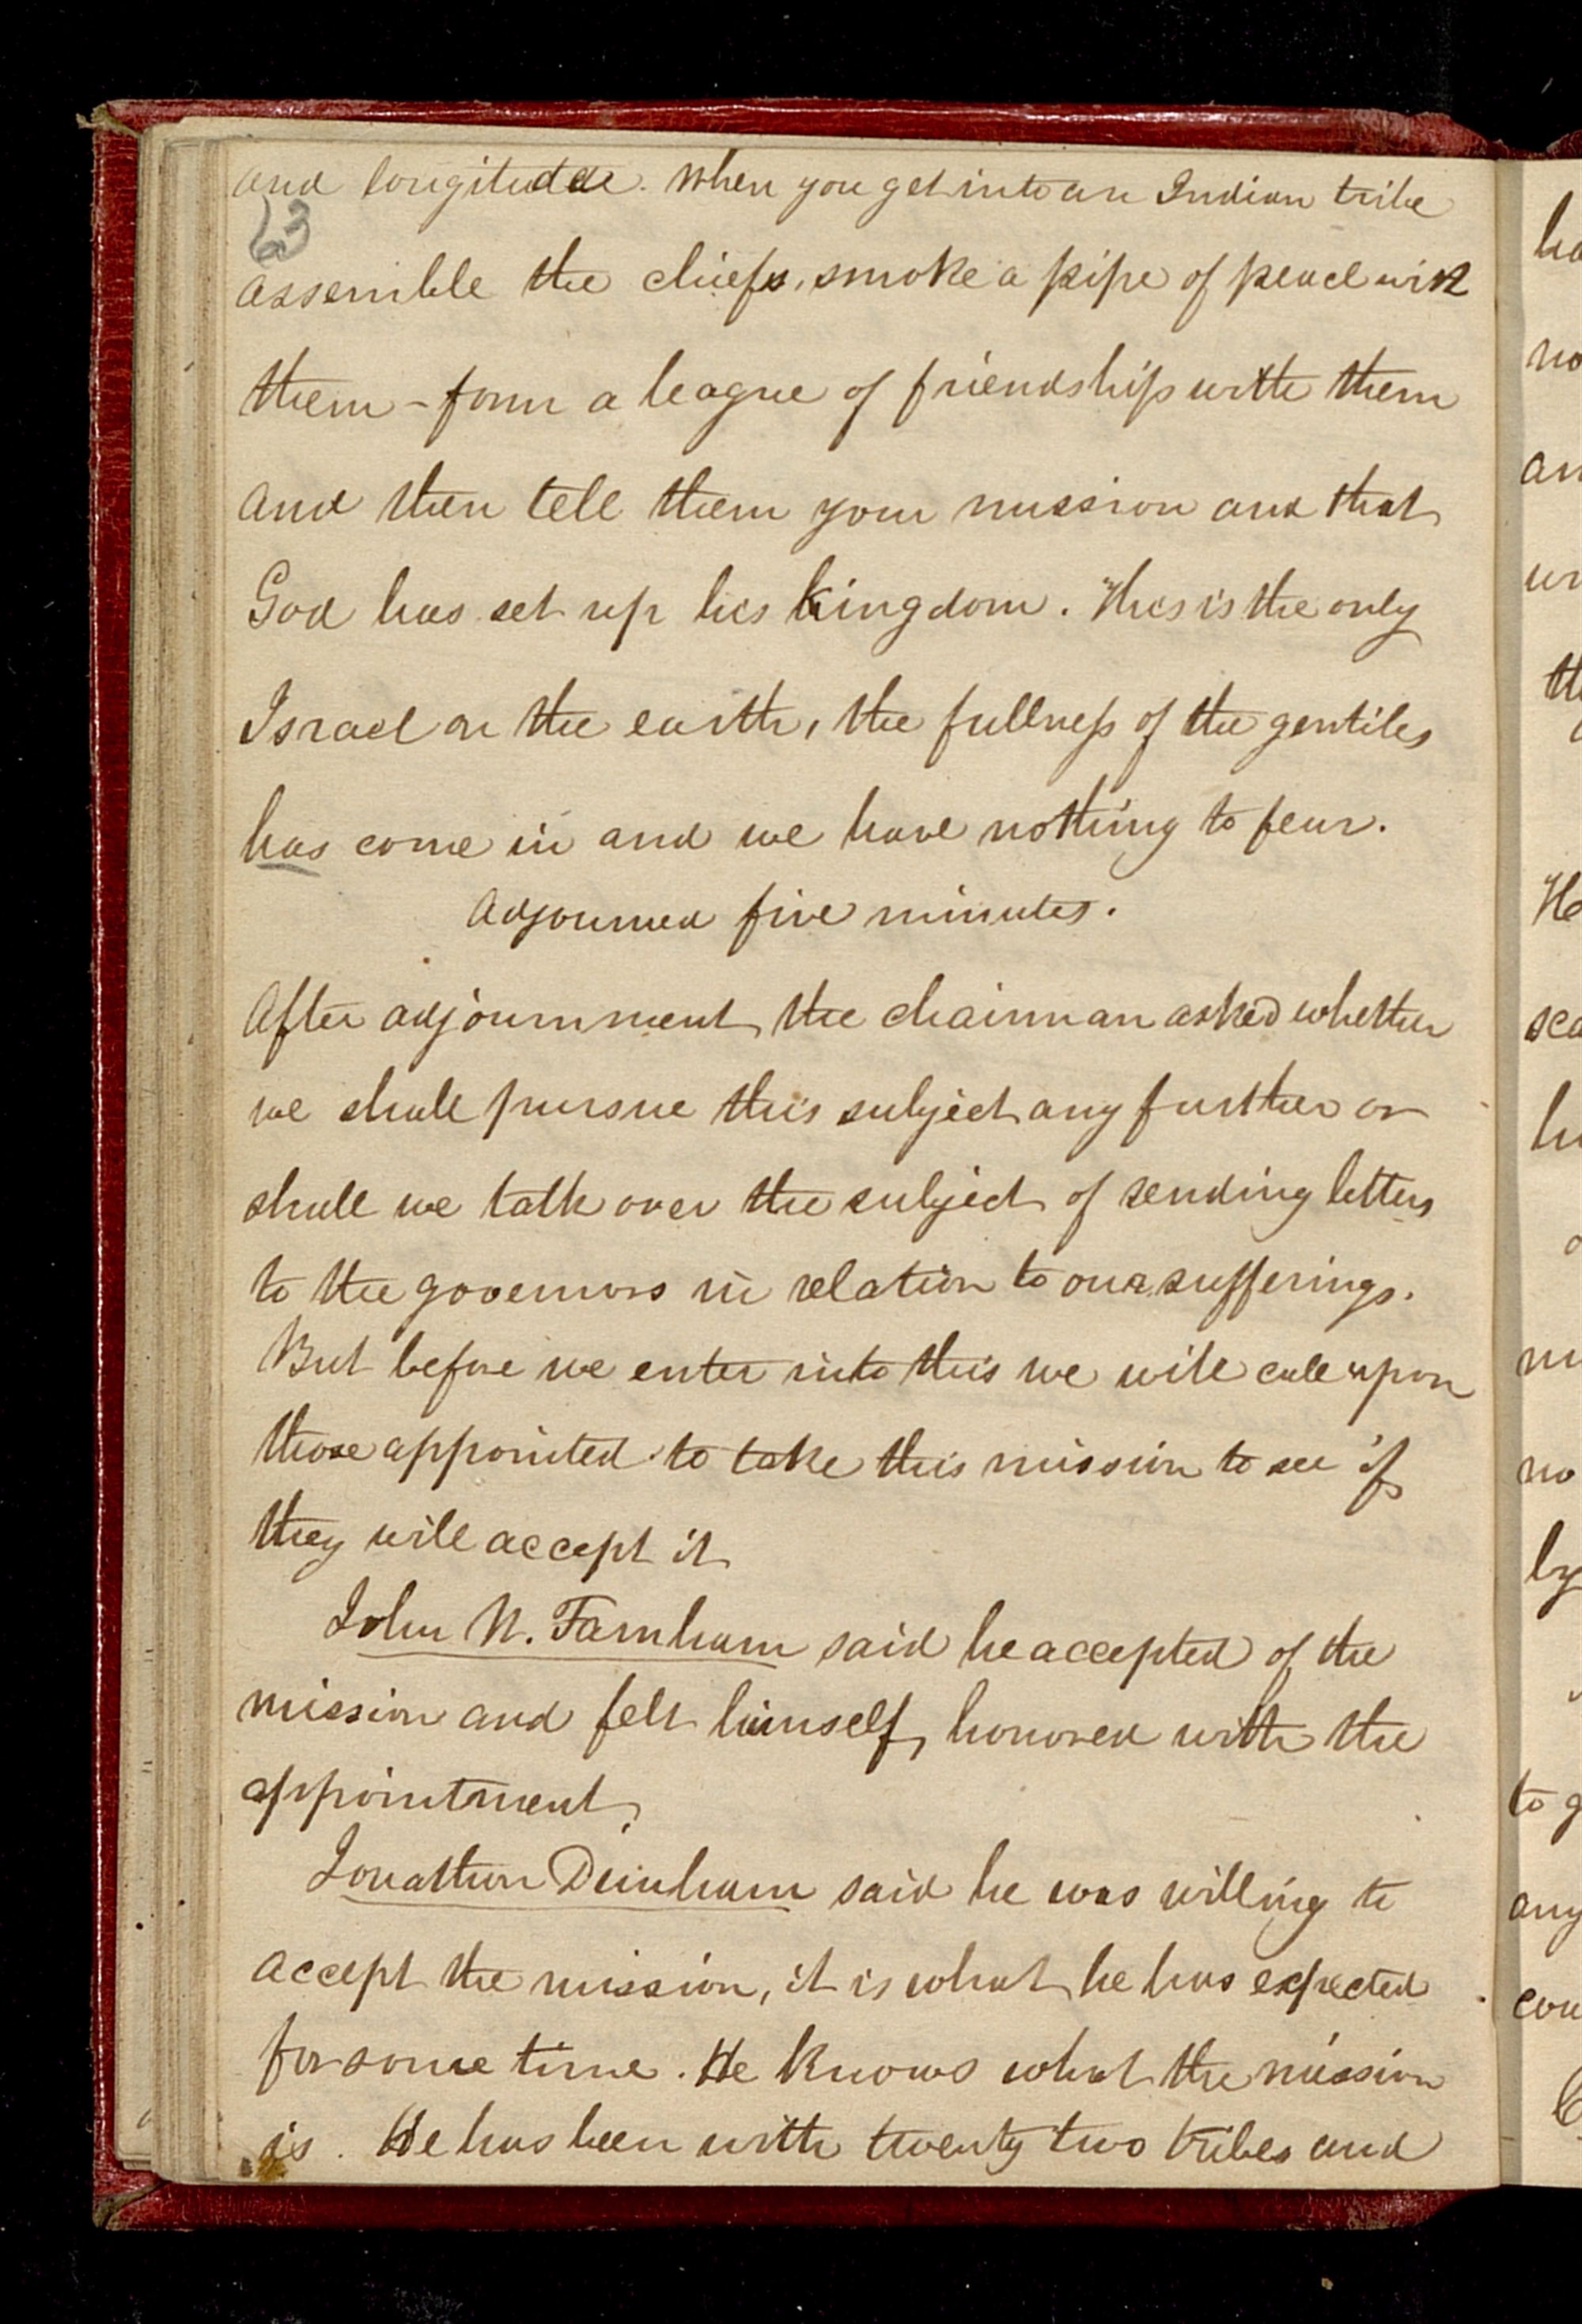 and longitude. When you get into an Indian tribe
63
assemble the chiefs, smoke a pipe of peace with
them - form a league of friendship with them
and then tell them your mission and that
God has set up his kingdom. This is the only
Israel on the earth, the fullness of the gentiles
has come in and we have nothing to fear.
Adjourned five minutes.
After adjournment the chairman asked whether
we shall pursue this subject any further or
shall we talk over the subject of sending letters
to the governors in relation to our sufferings.
But before we enter into this we will call upon
those appointed to take this mission to see if
they will accept it
John W. Farnham said he accepted of the
mission and felt himself honored with the
appointment.
Jonathan Dunham said he was willing to
accept the mission, it is what he has expected
for some time. He knows what the mission
is. He has been with twenty two tribes and